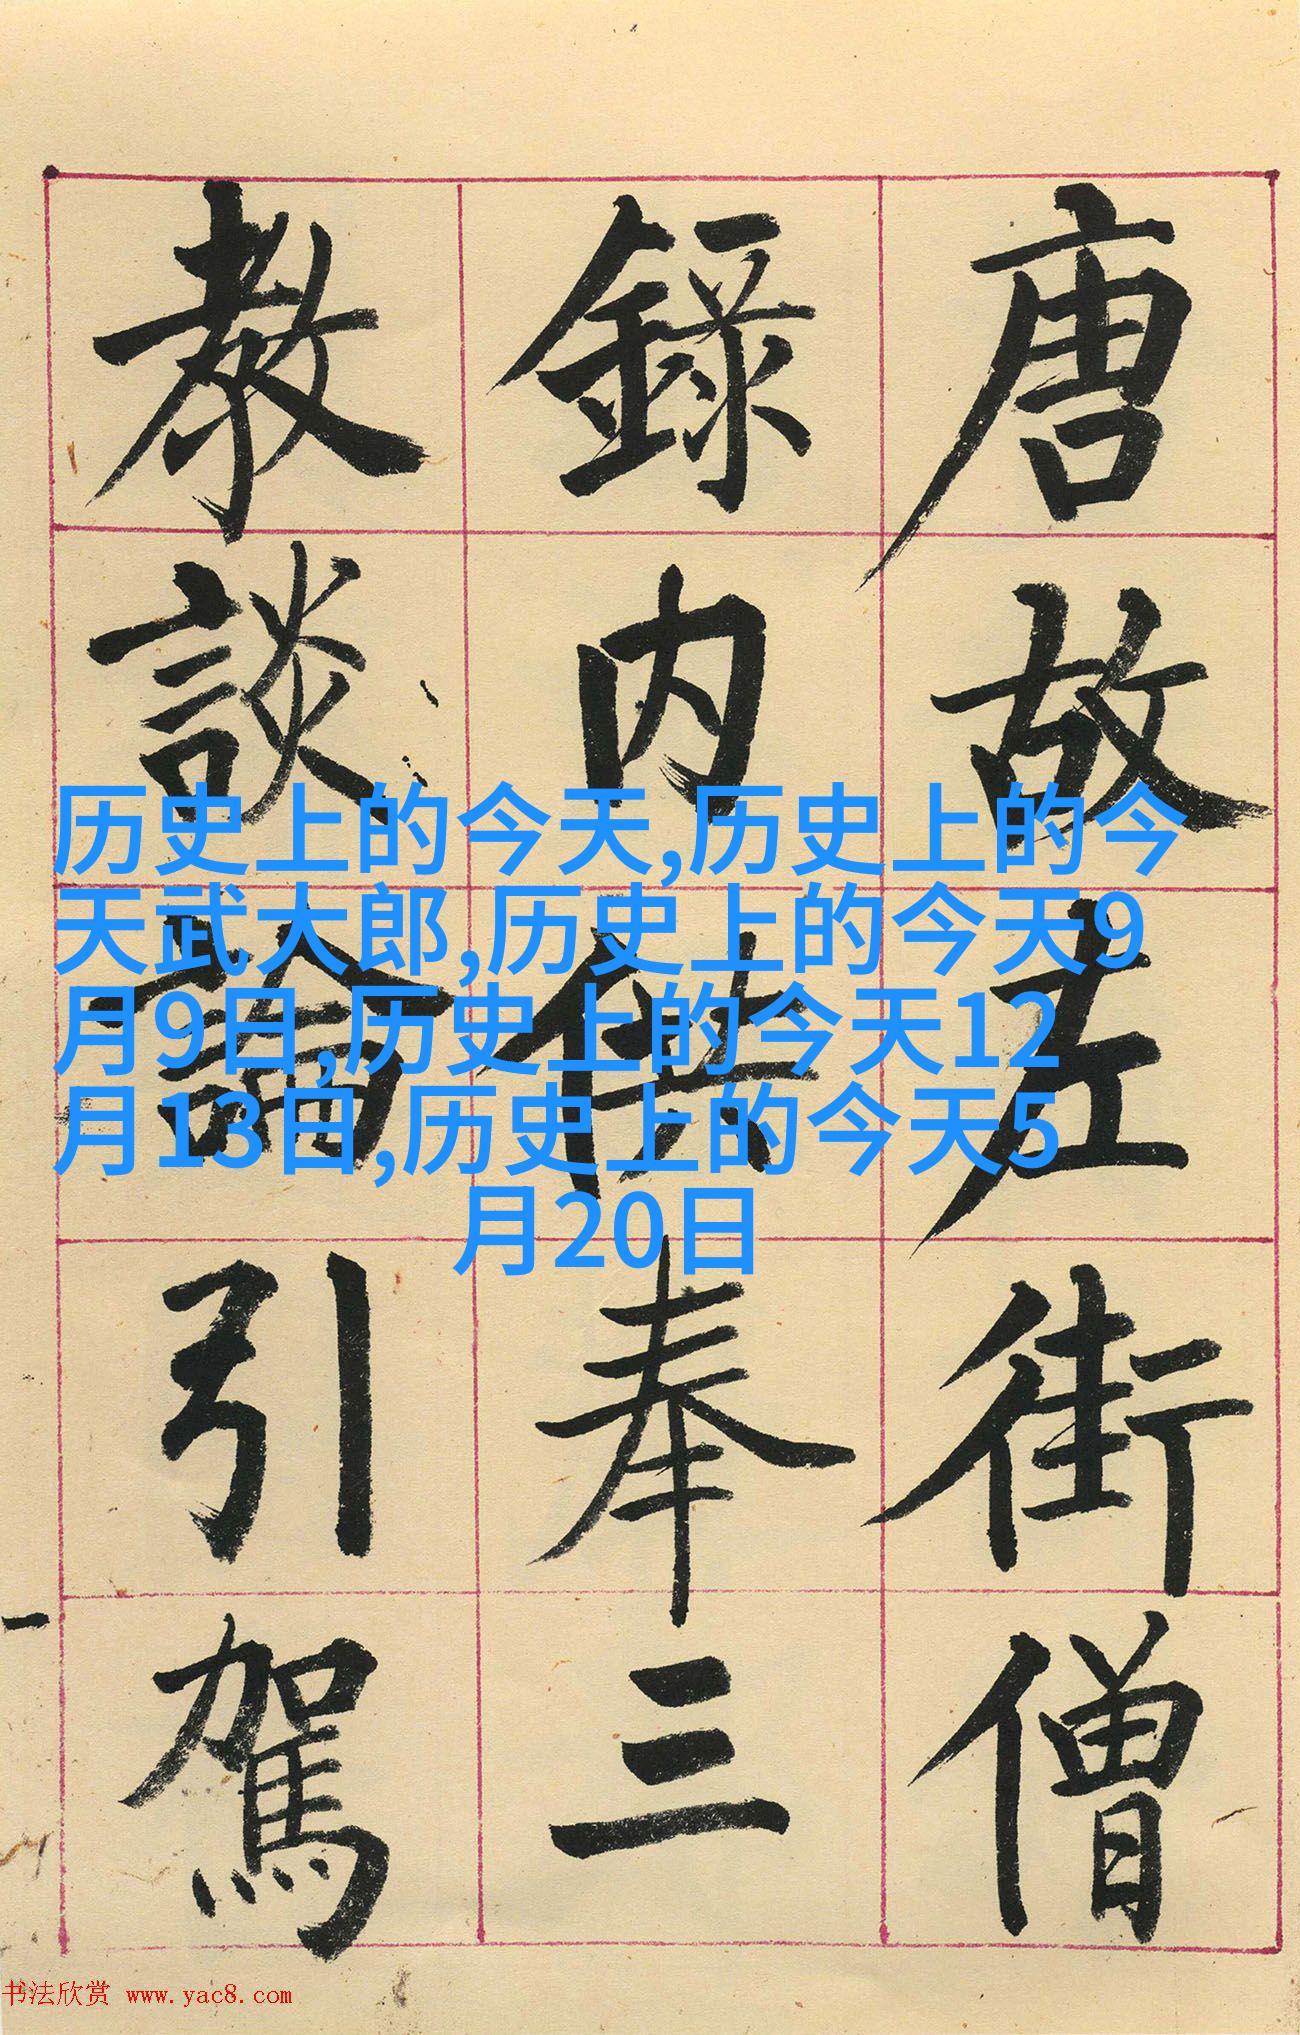 唐故左街僧
錄内供奉三
教談論引駕
历史上的今天,历史上的今
天武大郎,历史上的今天9
月9日,历史上的今天12
月13日,历史上的今天5
月20日
书法欣赏 www.yac8.com